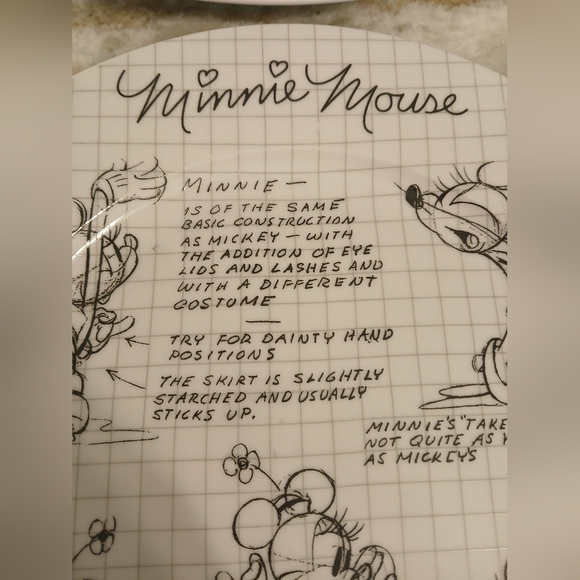 Minnie Mouse
MINNIE —
IS OF THE SAME
BASIC CONSTRUCTION
AS MICKEY — WITH
THE ADDITION OF EYE
LIDS AND LASHES AND
WITH A DIFFERENT
COSTUME
TRY FOR DAINTY HAND
POSITIONS
THE SKIRT IS SLIGHTLY
STARCHED AND USUALLY
STICKS UP.
MINNIE'S "TAKE
NOT QUITE AS
AS MICKEY'S